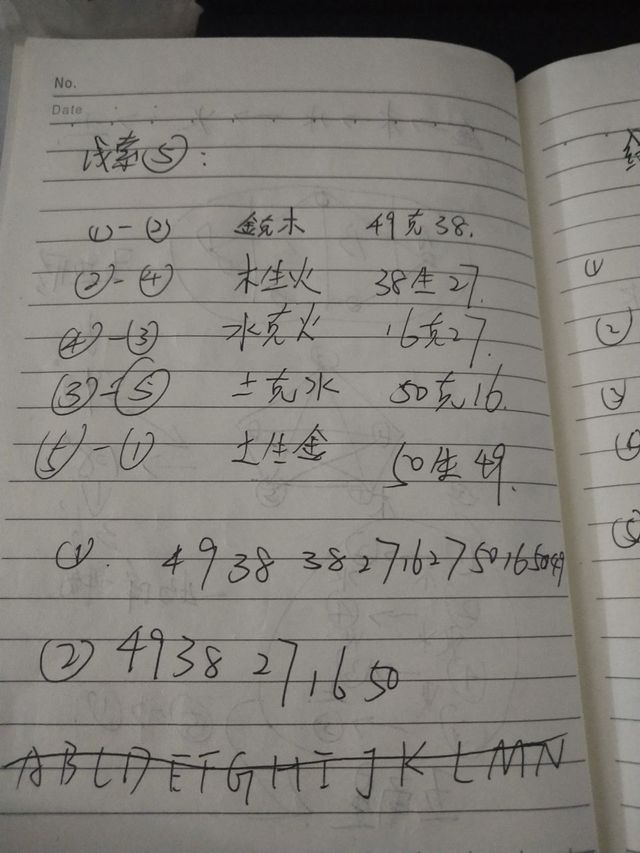 No.
Date
线索⑤:
①-② 金克木 49克38.
②-④ 木生火 38生27.
④-③ 水克火 16克27.
③-⑤ 土克水 50克16.
⑤-① 土生金 50生49.
①. 4938 3827,1627 50,165049
② 4938 27,16 50
A B C D E F G H I J K L M N
①
②
③
④
⑤